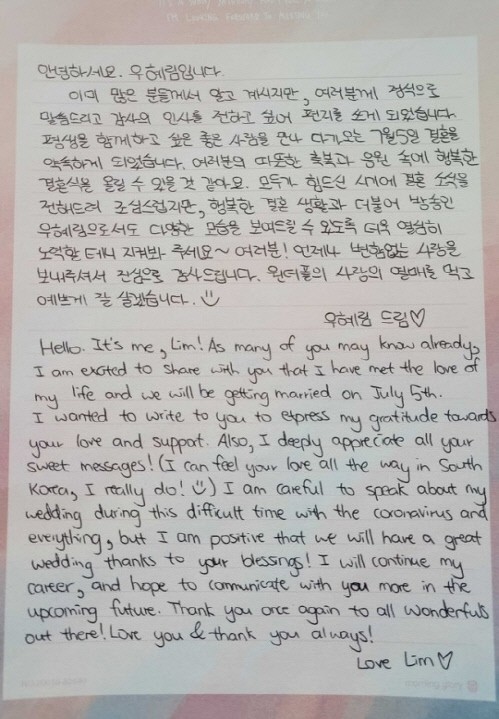 안녕하세요. 우혜림입니다.
이미 많은 분들께서 알고 계시지만, 여러분께 정식으로
말씀드리고 감사의 인사를 전하고 싶어 편지를 쓰게 되었습니다.
평생을 함께하고 싶은 좋은 사람을 만나 다가오는 7월5일 결혼을
약속하게 되었습니다. 여러분의 따뜻한 축복과 응원 속에 행복한
결혼식을 올릴 수 있을 것 같아요. 모두가 힘드신 시기에 결혼 소식을
전해드려 조심스럽지만, 행복한 결혼 생활과 더불어 방송인
우혜림으로서도 다양한 모습을 보여드릴 수 있도록 더욱 열심히
노력할 테니 지켜봐 주세요~ 여러분! 언제나 변함없는 사랑을
보내주셔서 진심으로 감사드립니다. 원더풀의 사랑의 열매를 먹고
예쁘게 잘 살겠습니다.
우혜림 드림♡
Hello. It's me, Lim! As many of you may know already,
I am excited to share with you that I have met the love of
my life and we will be getting married on July 5th.
I wanted to write to you to express my gratitude towards
your love and support. Also, I deeply appreciate all your
sweet messages! (I can feel your love all the way in South
Korea, I really do! ) I am careful to speak about my
wedding during this difficult time with the coronavirus and
everything, but I am positive that we will have a great
wedding thanks to your blessings! I will continue my
career, and hope to communicate with you more in the
upcoming future. Thank you once again to all Wonderfuls
out there! Love you & thank you always!
Love Lim♡